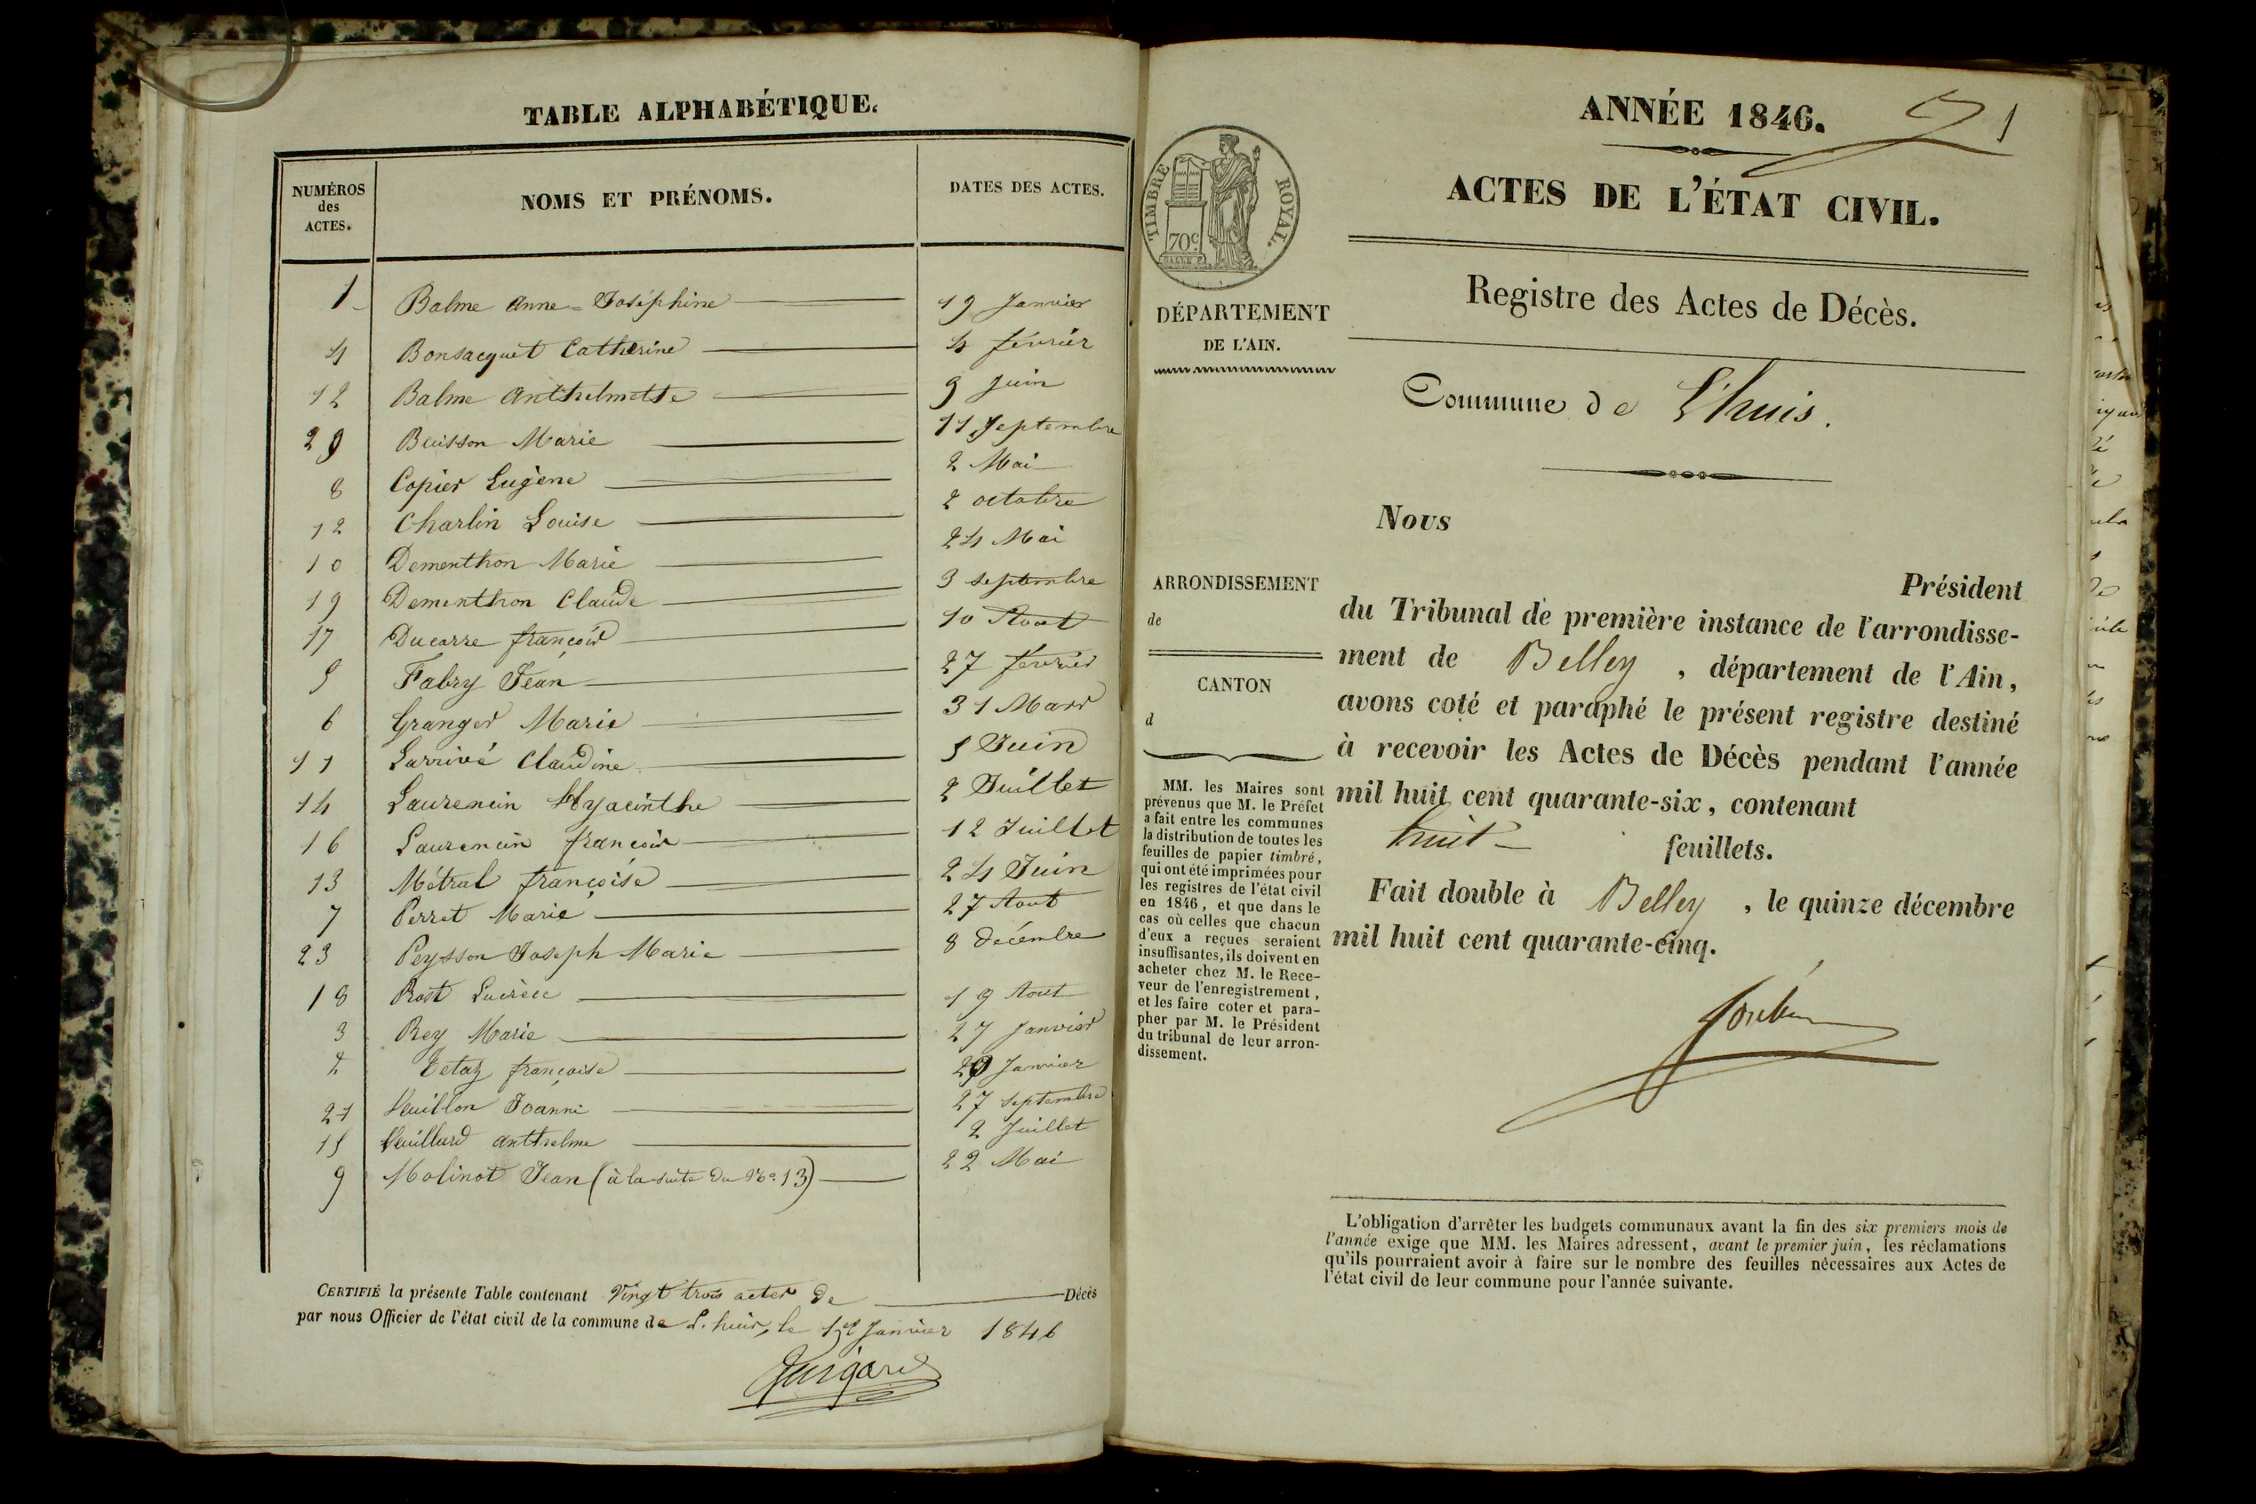 TABLE ALPHABÉTIQUE.
NUMÉROS des ACTES. NOMS ET PRÉNOMS. DATES DES ACTES.
1 Balme Anne = Joséphine 19 Janvier
4 Bonsacquet Catherine 4 février
12 Balme Anthelmette 9 Juin
20 Buisson Marie 11 Septembre
8 Copier Eugène 2 Mai
12 Charlin Louise 2 octobre
10 Dementhon Marie 24 Mai
19 Dementhon Claude 3 septembre
17 Ducarre françois 10 Aout
5 Fabry Jean 27 fevrier
6 Granger Marie 31 Mars
11 Larrivé Claudine 5 Juin
14 Laurencin Hyacinthe 2 Juillet
16 Laurencin françois 12 Juillet
13 Métral françoise 24 Juin
7 Perret Marie 27 Aout
23 Peysson Joseph Marie 8 décembre
18 Rost 19 Aout
3 Rey Marie 27 Janvier
2 Tetaz françoise 20 Janvier
21 Vuillon Joanni 27 septembre
15 Vuillard anthelme 2 Juillet
9 Molinot Jean (à la suite du No 13) 22 Mai
CERTIFIÉ la présente Table contenant Vingt trois actes de Décès
par nous Officier de l'état civil de la commune de L'huis, le 1er Janvier 1846
Guigard
ANNÉE 1846.
1
ACTES DE L'ÉTAT CIVIL.
TIMBRE ROYAL.
70c
Registre des Actes de Décès.
DÉPARTEMENT
DE L'AIN.
Commune de L'huis.
Nous
Président
du Tribunal de première instance de l'arrondisse-
ment de Belley, département de l'Ain,
avons coté et paraphé le présent registre destiné
à recevoir les Actes de Décès pendant l'année
mil huit cent quarante-six, contenant
huit feuillets.
Fait double à Belley, le quinze décembre
mil huit cent quarante-cinq.
ARRONDISSEMENT
de
CANTON
d
MM. les Maires sont
prévenus que M. le Préfet
a fait entre les communes
la distribution de toutes les
feuilles de papier timbré,
qui ont été imprimées pour
les registres de l'état civil
en 1846, et que dans le
cas où celles que chacun
d'eux a reçues seraient
insuffisantes, ils doivent en
acheter chez M. le Rece-
veur de l'enregistrement,
et les faire coter et para-
pher par M. le Président
du tribunal de leur arron-
dissement.
L'obligation d'arrêter les budgets communaux avant la fin des six premiers mois de
l'année exige que MM. les Maires adressent, avant le premier juin, les réclamations
qu'ils pourraient avoir à faire sur le nombre des feuilles nécessaires aux Actes de
l'état civil de leur commune pour l'année suivante.